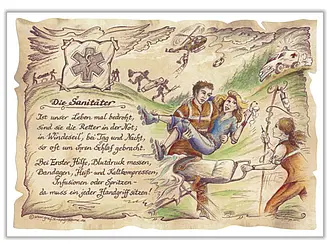 Die Sanitäter
Ist unser Leben mal bedroht,
sind sie die Retter in der Not,
in Windeseil', bei Tag und Nacht,
so oft um ihren Schlaf gebracht.
Bei Erster Hilfe, Blutdruck messen,
Bandagen, Heiß- und Kaltkompressen,
Infusionen oder Spritzen -
da muss ein jeder Handgriff sitzen!